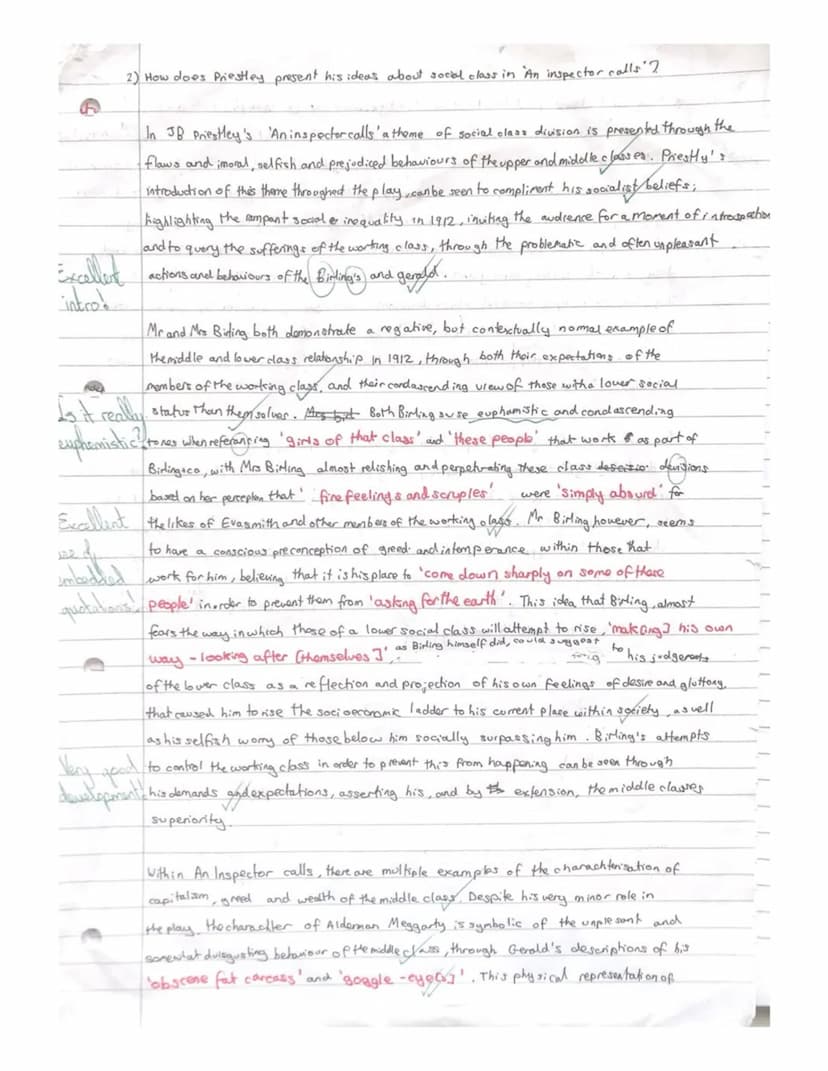 2) How does Priestley present his ideas about social class in 'An inspector calls'?
In JB Priestley's 'An inspector calls' a theme of social class division is presented through the
flaws and imoral, selfish and prejudiced behaviours of the upper and middle classes. Priestly's
introduction of this theme throughout the play, can be seen to compliment his socialist beliefs;
highlighting the rampant social inequality in 1912, inviting the audience for a moment of introspection
and to query the sufferings of the working class, through the problematic and often unpleasant
actions and behaviours of the Birling's and gerald.
Excellent
intro!
Mr and Mrs Birling both demonstrate a negative, but contextually normal example of
the middle and lower class relationship in 1912, through both their expectations of the
members of the working class, and their condascending view of those with a lower social
status than themselves. Both Birlings use euphamistic and condascending
Is it really
euphemistic?
tones when referancing 'girls of that class' and 'these people' that work as part of
Birling+co, with Mrs Birling almost relishing and perpetrating these class devisions
based on her perception that 'fine feelings and scruples' were 'simply absurd' for
the likes of Eva smith and other members of the working class. Mr Birling however, seems
Excellent
use of
embedded
quotations!
to have a conscious preconception of greed and intemperance within those that
work for him, believing that it is his place to 'come down sharply on some of these
people' in order to prevent them from 'asking for the earth'. This idea that Birling, almost
fears the way in which those of a lower social class will attempt to rise, 'mak[ing] his own
way - looking after [themselves]', as Birling himself did, could suggest to his judgements
of the lower class as a reflection and projection of his own feelings of desire and gluttony,
that caused him to rise the socioeconomic ladder to his current place within society, as well
as his selfish worry of those below him socially surpassing him. Birling's attempts
to control the working class in order to prevent this from happening can be seen through
Very good
development!
his demands and expectations, asserting his, and by extension, the middle classes
superiority.
Within An Inspector calls, there are multiple examples of the charachterisation of
capitalism, greed and wealth of the middle class. Despite his very minor role in
the play, the charachter of Alderman Meggarty is symbolic of the unplesant and
somewhat disgusting behaviour of the middle class, through Gerald's descriptions of his
'obscene fat carcass' and 'goggle-eye[s]'. This physical representation of